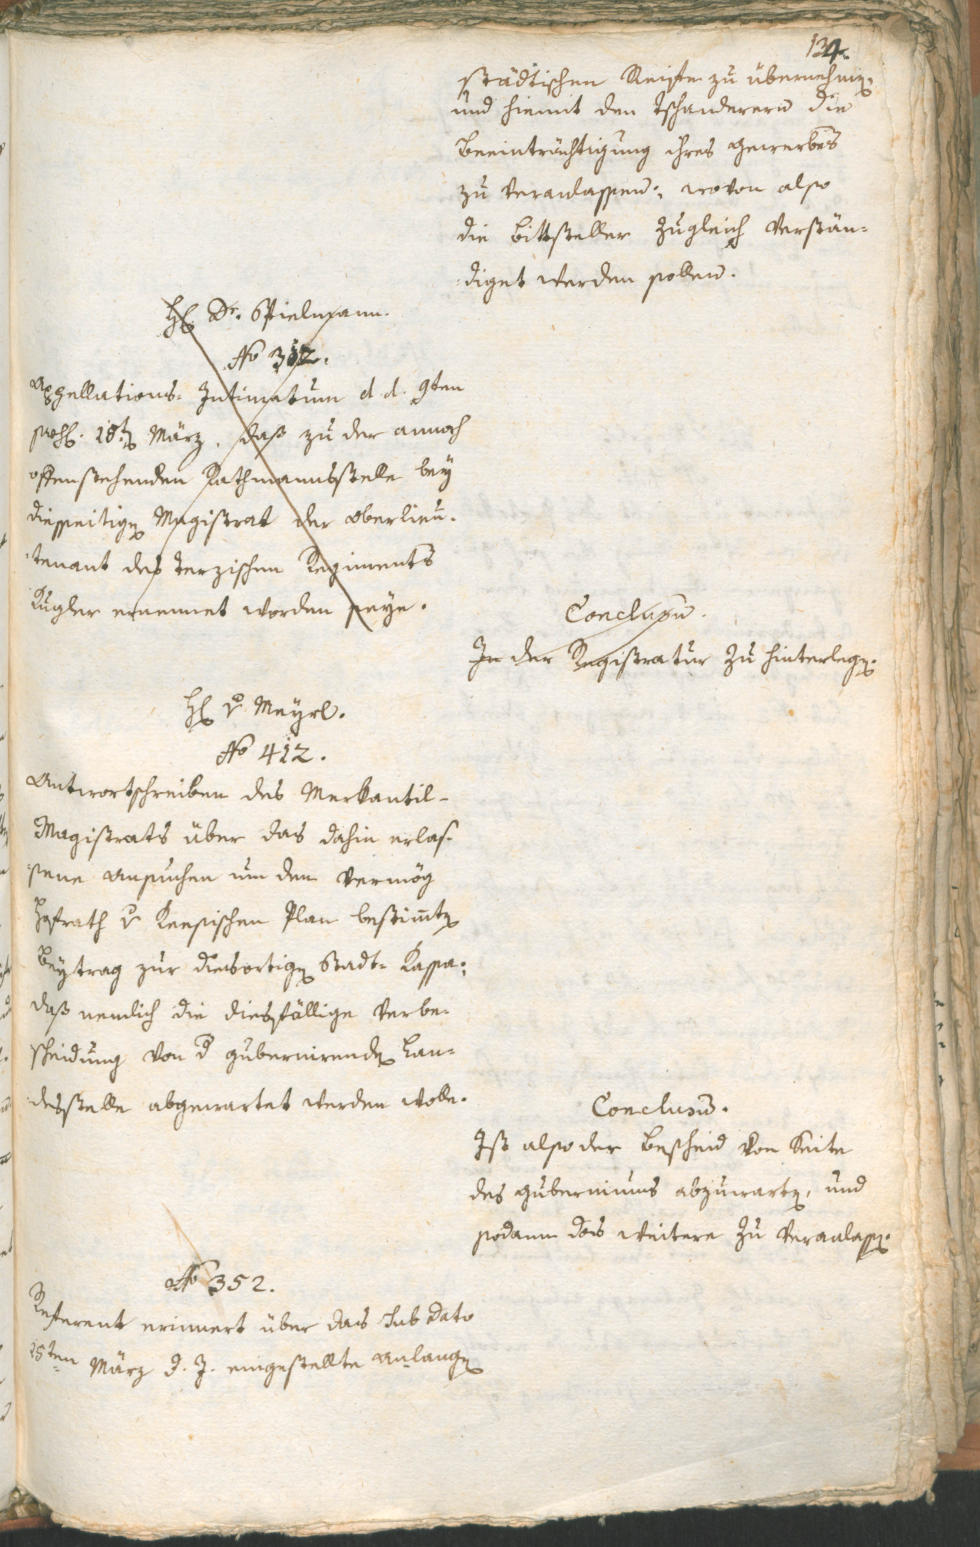 134.
städtischen Reisten zu übernehmen,
und hiemit den Tschanderern die
Beeinträchtigung ihres Gewerbes
zu veranlassen; wovon also
die Bittsteller zugleich verstän-
diget werden sollen.
H. Dr. Spielmann.
No 312.
Appellations-Intimatum d. d. 9ten
18t März, daß zu der annoch
offenstehenden Rathmannsstelle bey
diesseitigen Magistrat der Oberlieu-
tenant des Terzischen Regiments
Kugler ernennet worden seye.
Conclusum.
In der Registratur zu hinterlegen.
H. v. Meyrl.
No 412.
Antwortschreiben des Merkantil-
Magistrats über das dahin erlas-
sene Ansuchen um den vermög
Hofrath v. Keesischen Plan bestimmten
Beytrag zur diesortigen Stadt-Kassa;
daß nemlich die diesfällige Verbe-
scheidung von d. gubernirenden Lan-
desstelle abgewartet werden wolle.
Conclusum.
Ist also der Bescheid von Seite
des Guberniums abzuwarten, und
sodann das weitere zu veranlassen.
No 352.
Referent erinnert über das sub dato
15ten März d. J. eingestellte Anlangen